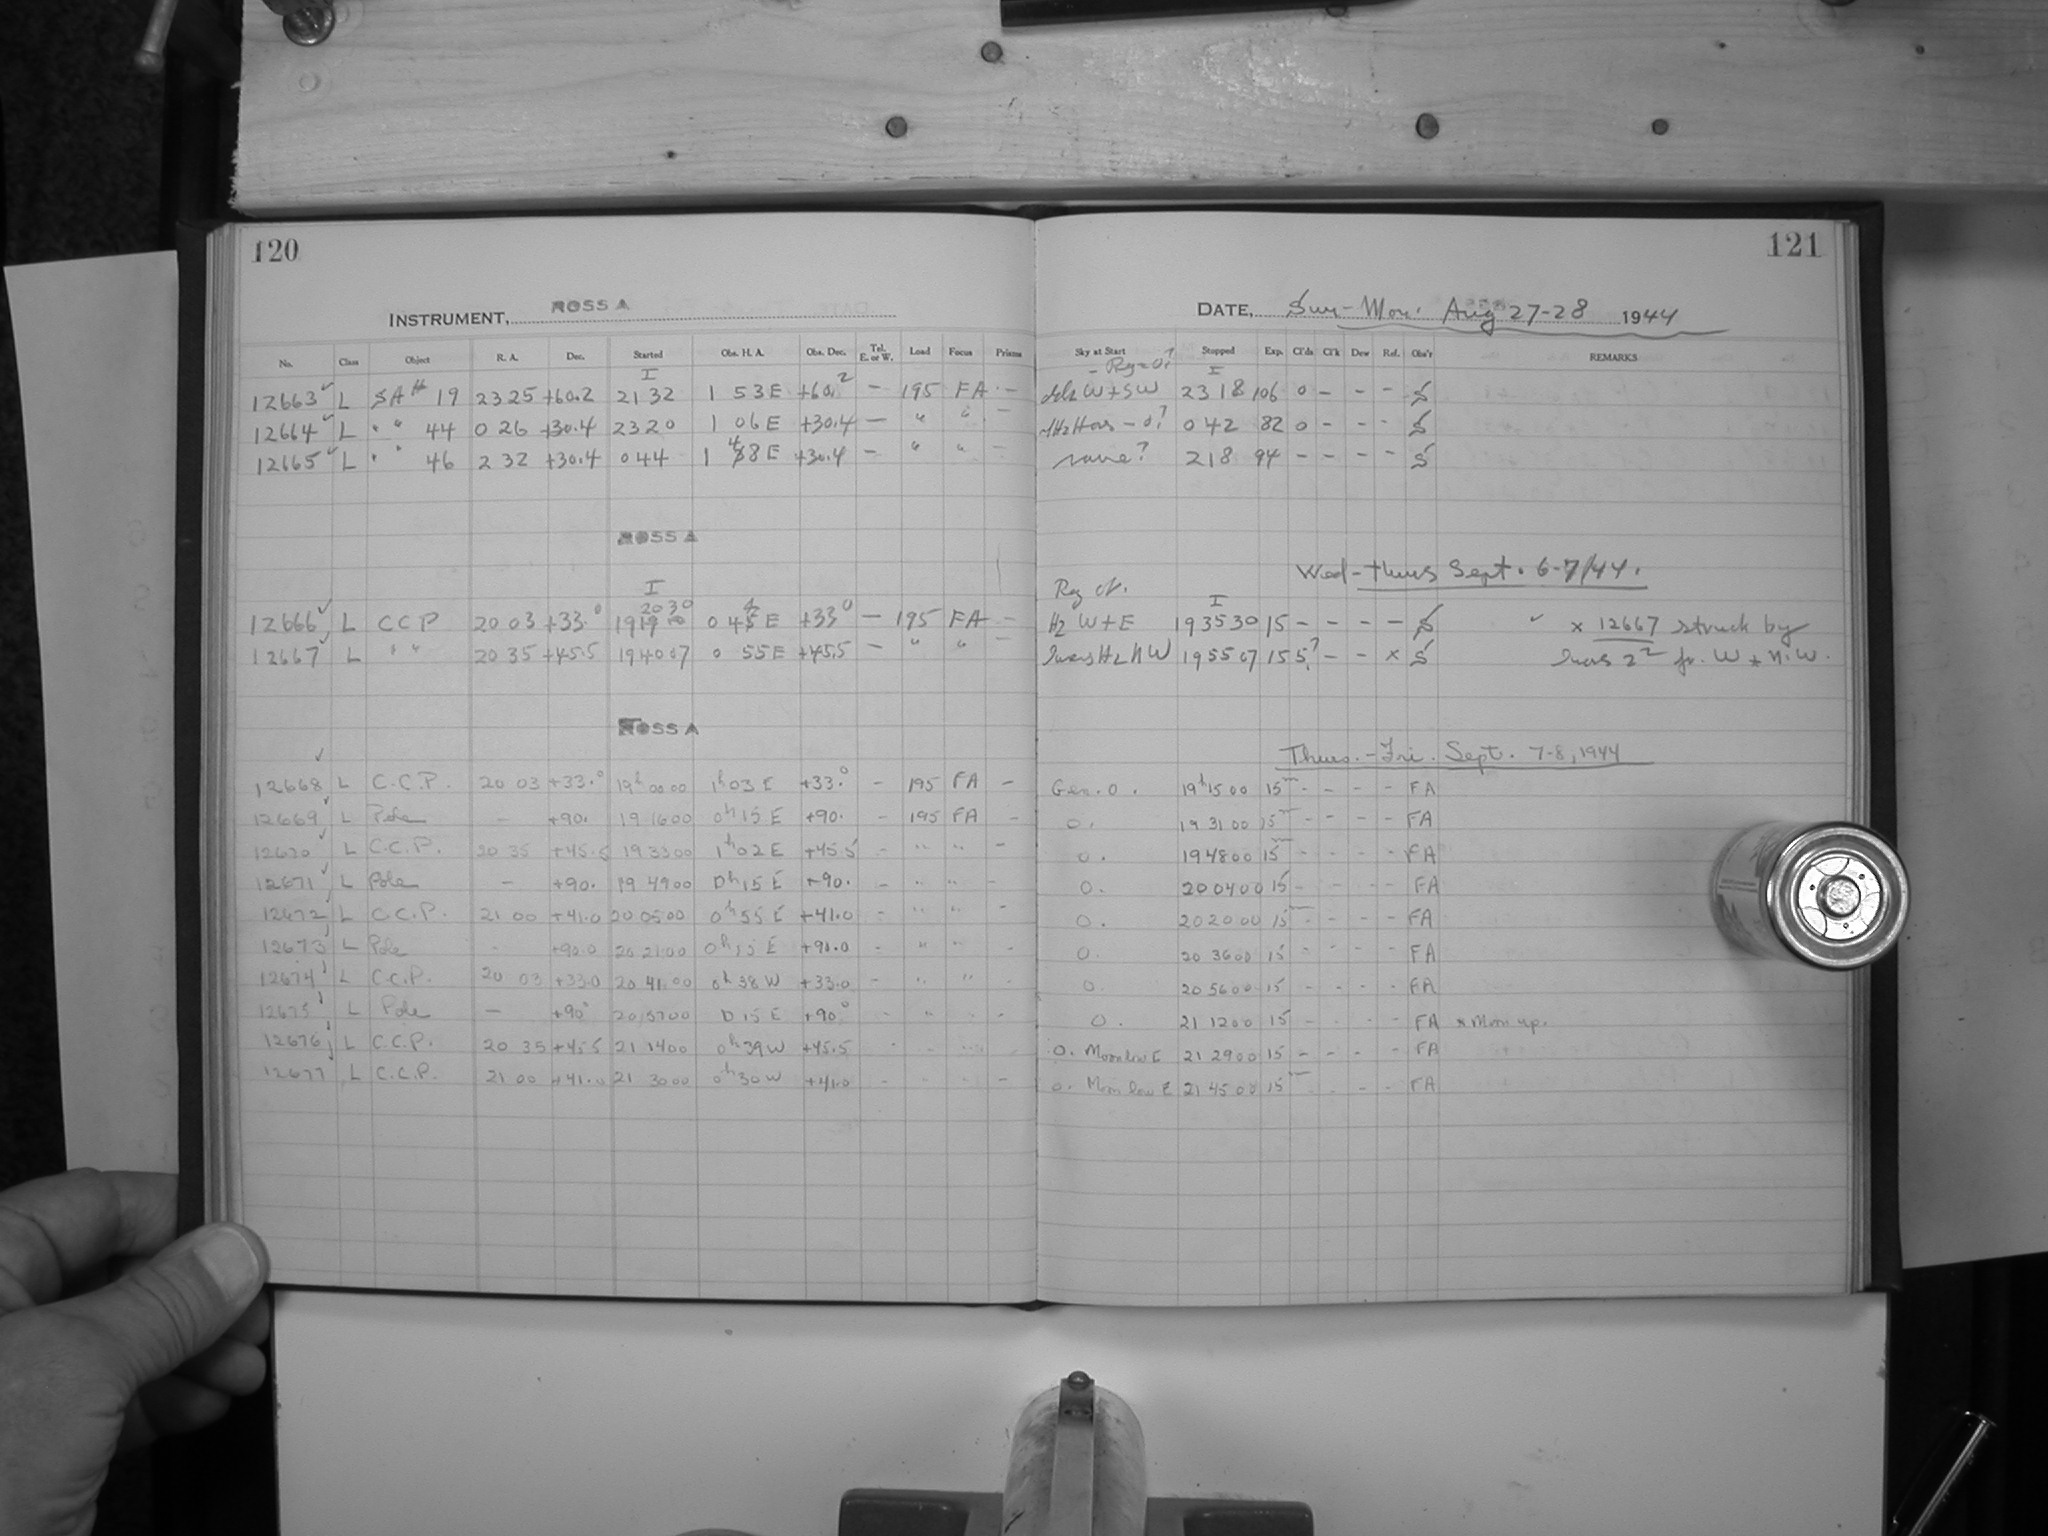 120
INSTRUMENT, ROSS A
No. Class Object R. A. Dec. Started Obs. H. A. Obs. Dec. Tel. E. or W. Load Focus Prisms
I
12663 ✓ L SA# 19 23 25 +60.2 21 32 1 53 E +60.2 – 195 FA –
12664 ✓ L " " 44 0 26 +30.4 23 20 1 06 E +30.4 – " " –
12665 ✓ L " " 46 2 32 +30.4 0 44 1 48 E +30.4 – " " –
ROSS A
I
12666 ✓ L CCP 20 03 +33.° 19 20 30 0 45 E +33° – 195 FA –
12667 ✓ L " " 20 35 +45.5 19 40 07 0 55 E +45.5 – " " –
ROSS A
12668 ✓ L C.C.P. 20 03 +33.° 19h 00 00 1h 03 E +33.° – 195 FA –
12669 ✓ L Pole – +90. 19 16 00 0h 15 E +90. – 195 FA –
12670 ✓ L C.C.P. 20 35 +45.5 19 33 00 1h 02 E +45.5 – " " –
12671 ✓ L Pole – +90. 19 49 00 0h 15 E +90. – " " –
12672 ✓ L C.C.P. 21 00 +41.0 20 05 00 0h 55 E +41.0 – " " –
12673 ✓ L Pole – +90.0 20 21 00 0h 15 E +90.0 – " " –
12674 ✓ L C.C.P. 20 03 +33.0 20 41 00 0h 38 W +33.0 – " " –
12675 ✓ L Pole – +90° 20 57 00 0 15 E +90° – " " –
12676 ✓ L C.C.P. 20 35 +45.5 21 14 00 0h 39 W +45.5
12677 L C.C.P. 21 00 +41.0 21 30 00 0h 30 W +41.0 – – – –
121
DATE, Sun-Mon. Aug 27-28 1944
Sky at Start Stopped Exp. Cl'ds Cl'k Dew Ref. Obs'r REMARKS
I
W + SW 23 18 106 0 – – – S
0 42 82 0 – – – S
2 18 94 – – – – S
Wed-Thurs Sept. 6-7/44.
I
Hz W + E 19 35 30 15 – – – – S ✓ x 12667 struck by
Hz NW 19 55 07 15 5? – – x S fr. W + N.W.
Thurs.-Fri. Sept. 7-8, 1944
Gen. 0. 19h 15 00 15m – – – – FA
0. 19 31 00 15m – – – – FA
0. 19 48 00 15m – – – – FA
0. 20 04 00 15 – – – – FA
0. 20 20 00 15m – – – – FA
0. 20 36 00 15 – – – – FA
0. 20 56 00 15 – – – – FA
0. 21 12 00 15 – – – – FA x Moon up.
0. Moon low E 21 29 00 15 – – – – FA
0. Moon low E 21 45 00 15m – – – – FA